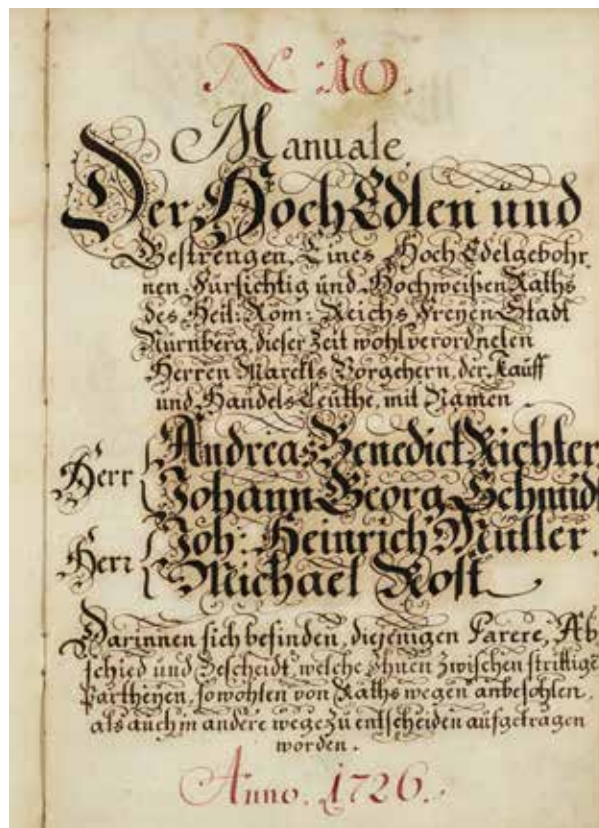 N: 10.
Manuale
Der HochEdlen und
Gestrengen, Eines HochEdelgebohr,
nen Fürsichtig und Hochweißen Raths
des Heil: Röm: Reichs Freyen Stadt
Nürnberg, dieser Zeit wohlverordneten
Herren Marckts Vorgehern, der Kauff
und Handels Leuthe, mit Namen
Herr { Andreas Benedict Richter,
Johann Georg Schmidt
Herr { Joh: Heinrich Müller.
Michael Rost
Darinnen sich befinden, diejenigen Parere, Ab
schied und Bescheidt, welche Ihnen zwischen strittige
Partheyen, sowohlen von Raths wegen anbefohlen,
als auch in andere wege zu entscheiden aufgetragen
worden.
Anno. 1726.